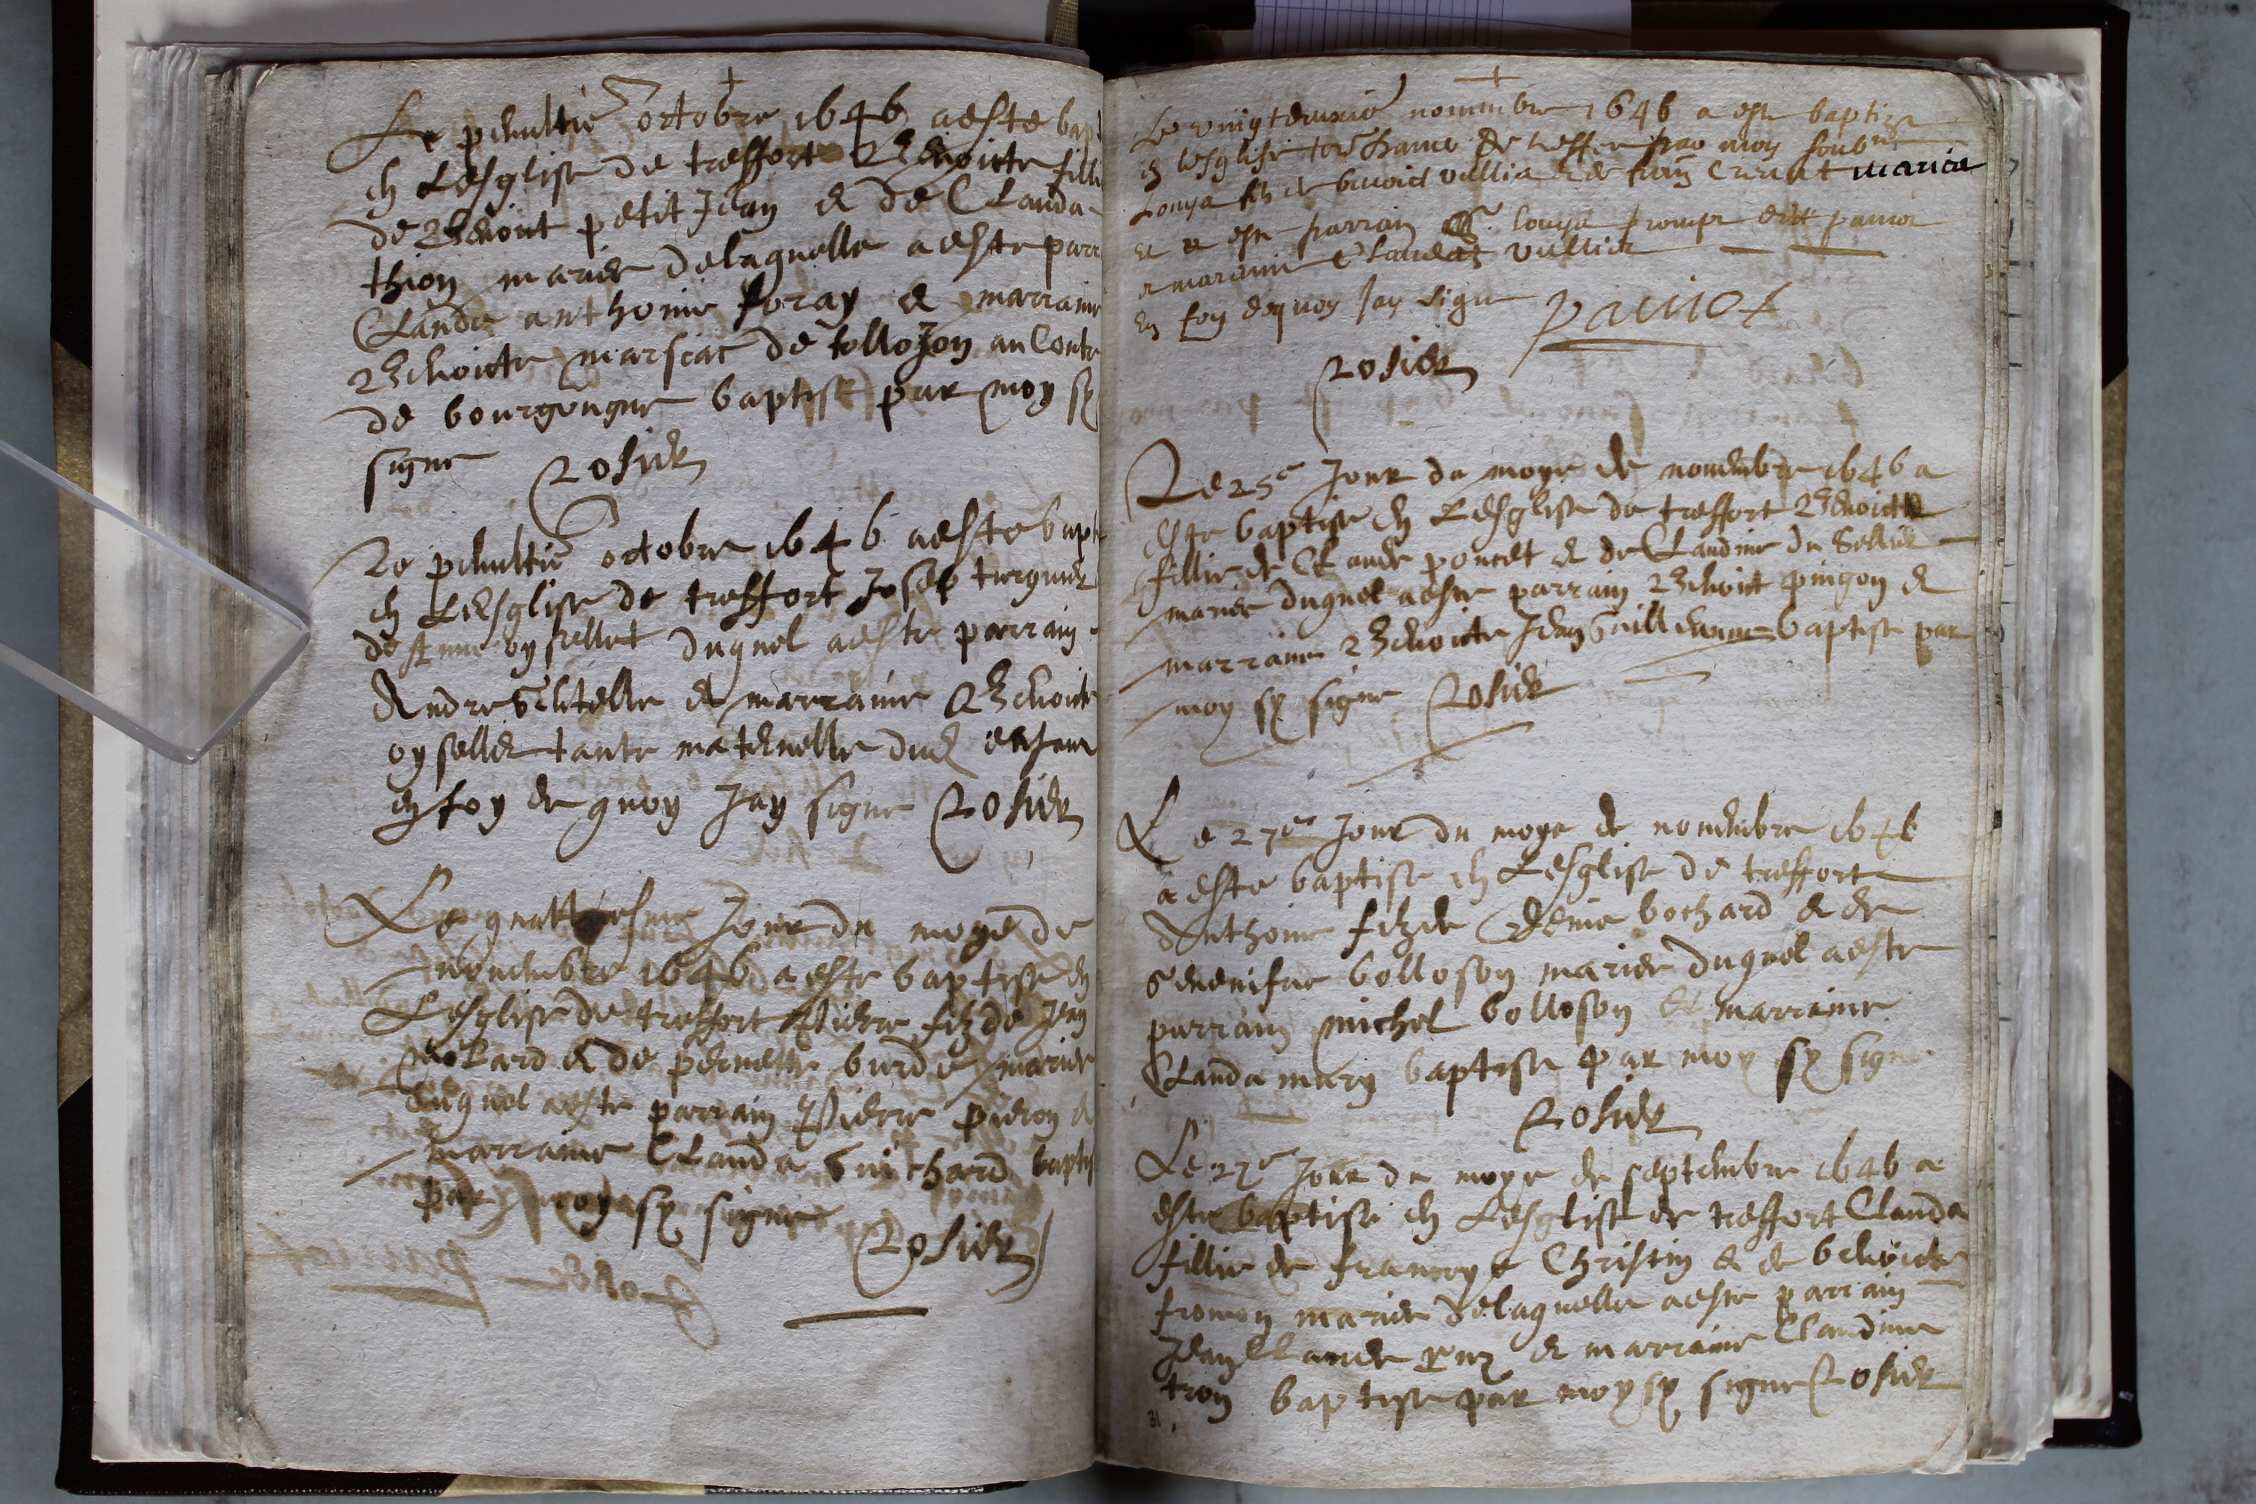 Le penultie octobre 1646 a este bap
en Lesglise de treffort Benoicte fillie
de Benoict petit Jean & de Clauda
thion mariez de laquelle a este parr
Claude anthoine foray & marraine
Benoicte marsiac de tollojon au Conte
de bourgongne baptisee par moy sz
signe Rosier
Le penultie octobre 1646 a este bapt
en Lesglise de treffort Joseph
de Anne oysellet duquel a este parrain
Andre & marraine Benoicte
oysellet tante maternelle dud enfant
en foy de quoy Jay signe Rosier
Le quattriesme Jour du moys de
novembre 1646 a este baptise en
Lesglise de treffort Pierre filz de Jean
& de pernette burde mariez
duquel a este parrain Pierre pieron &
marraine Clauda Guichard baptise
par moy sz signe Rosier
Le vingtdeuxie novembre 1646 a este baptize
en lesglise de treffort par moy soubne
Louys filz de benoict vullie & de mariez
et a este parrain louys
& marraine Claudaz vullier
en foy dequoy Jay signe paviot
Rosier
Le 25e Jour du moys de novembre 1646 a
este baptise en Lesglise de treffort Benoicte
fillie de Claude poncet & de Claudine du
mariez duquel a este parrain Benoict pingon &
marraine Benoicte Jean baptise par
moy sz signe Rosier
Le 27e Jour du moys de novembre 1646
a este baptise en Lesglise de treffort
Anthoine filz de Denis bochard & de
Genenifue bolloson mariez duquel a este
parrain michel bolloson & marraine
Clauda mury baptise par moy sz signe
Rosier
Le 27e Jour du moys de septembre 1646 a
este baptise en Lesglise de treffort Clauda
fillie de francoys Christin & de benoicte
fromon mariez de laquelle a este parrain
Jean Claude & marraine Claudine
tron baptise par moy sz signe Rosier
31